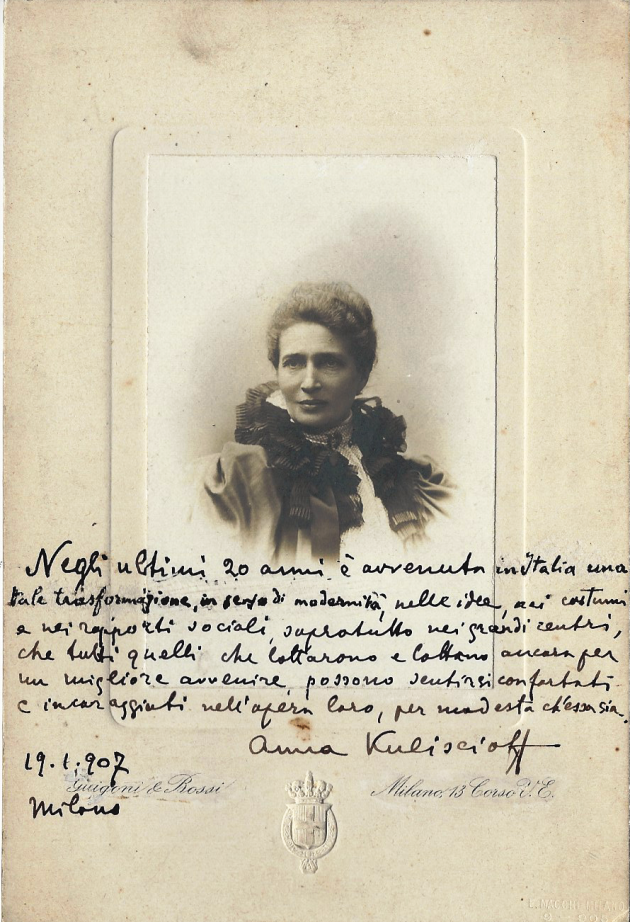 Negli ultimi 20 anni è avvenuta in Italia una
tale trasformazione, in senso di modernità, nelle idee, nei costumi
e nei rapporti sociali, sopratutto nei grandi centri,
che tutti quelli che lottarono e lottano ancora per
un migliore avvenire, possono sentirsi confortati
e incoraggiati nell'opera loro, per modesta ch'essa sia.
Anna Kuliscioff
19.1.907
Guigoni & Rossi Milano, 13 Corso V.E.
Milano